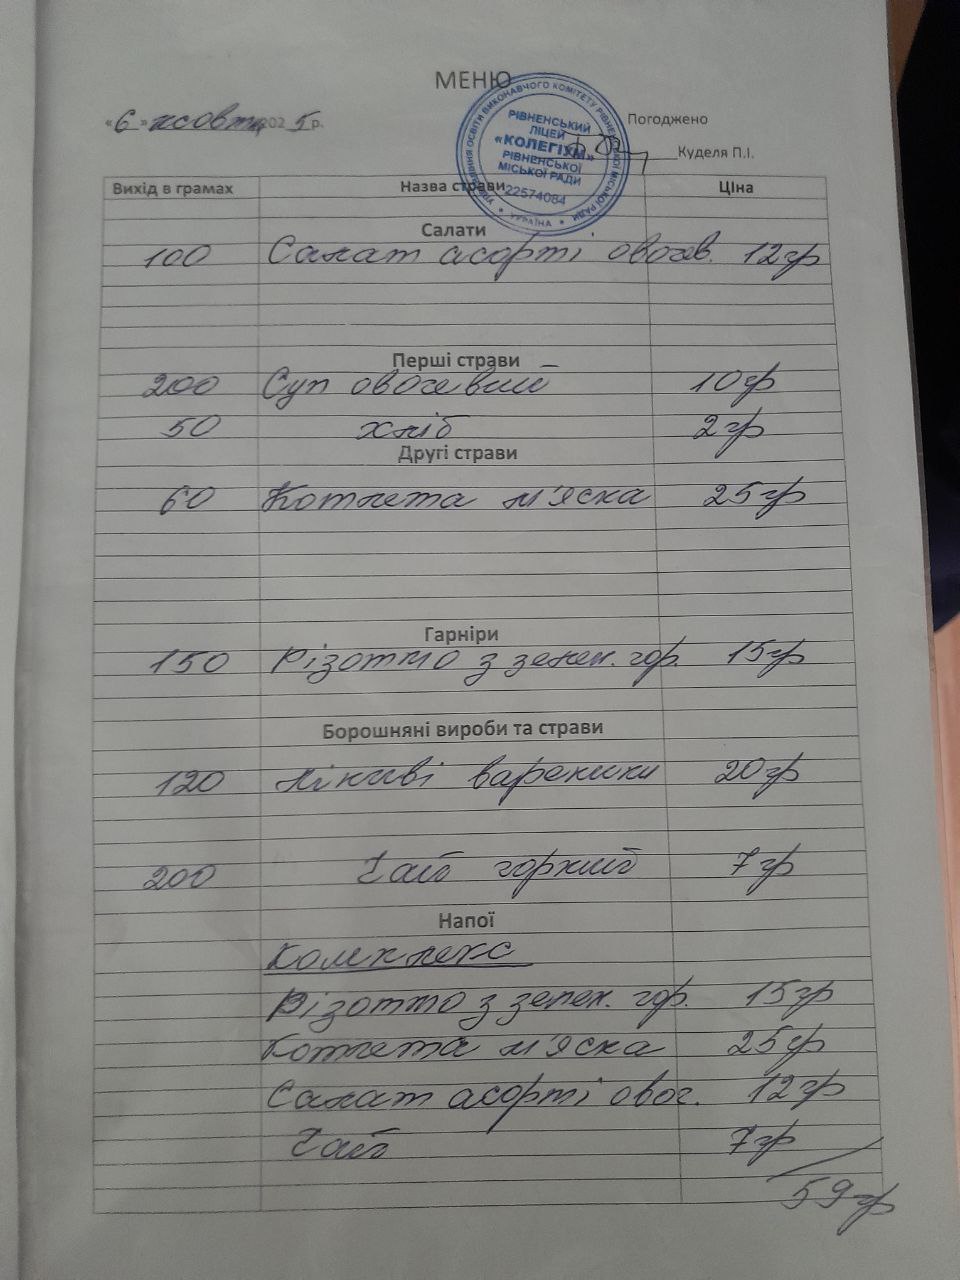 МЕНЮ
«6» жовтня 2025 р.
Погоджено
Куделя П.І.
УПРАВЛІННЯ ОСВІТИ ВИКОНАВЧОГО КОМІТЕТУ РІВНЕНСЬКОЇ МІСЬКОЇ РАДИ * УКРАЇНА *
РІВНЕНСЬКИЙ
ЛІЦЕЙ
«КОЛЕГІУМ»
РІВНЕНСЬКОЇ
МІСЬКОЇ РАДИ
22574084
Вихід в грамах Назва страви Ціна
Салати
100 Салат асорті овочев. 12гр
Перші страви
200 Суп овочевий 10гр
50 хліб 2гр
Другі страви
60 Котлета м'ясна 25гр
Гарніри
150 Різотто з зелен. гор. 15гр
Борошняні вироби та страви
120 Ліниві вареники 20гр
200 Чай горкий 7гр
Напої
Комплекс
Різотто з зелен. гор. 15гр
Котлета м'ясна 25гр
Салат асорті овоч. 12гр
Чай 7гр
59гр